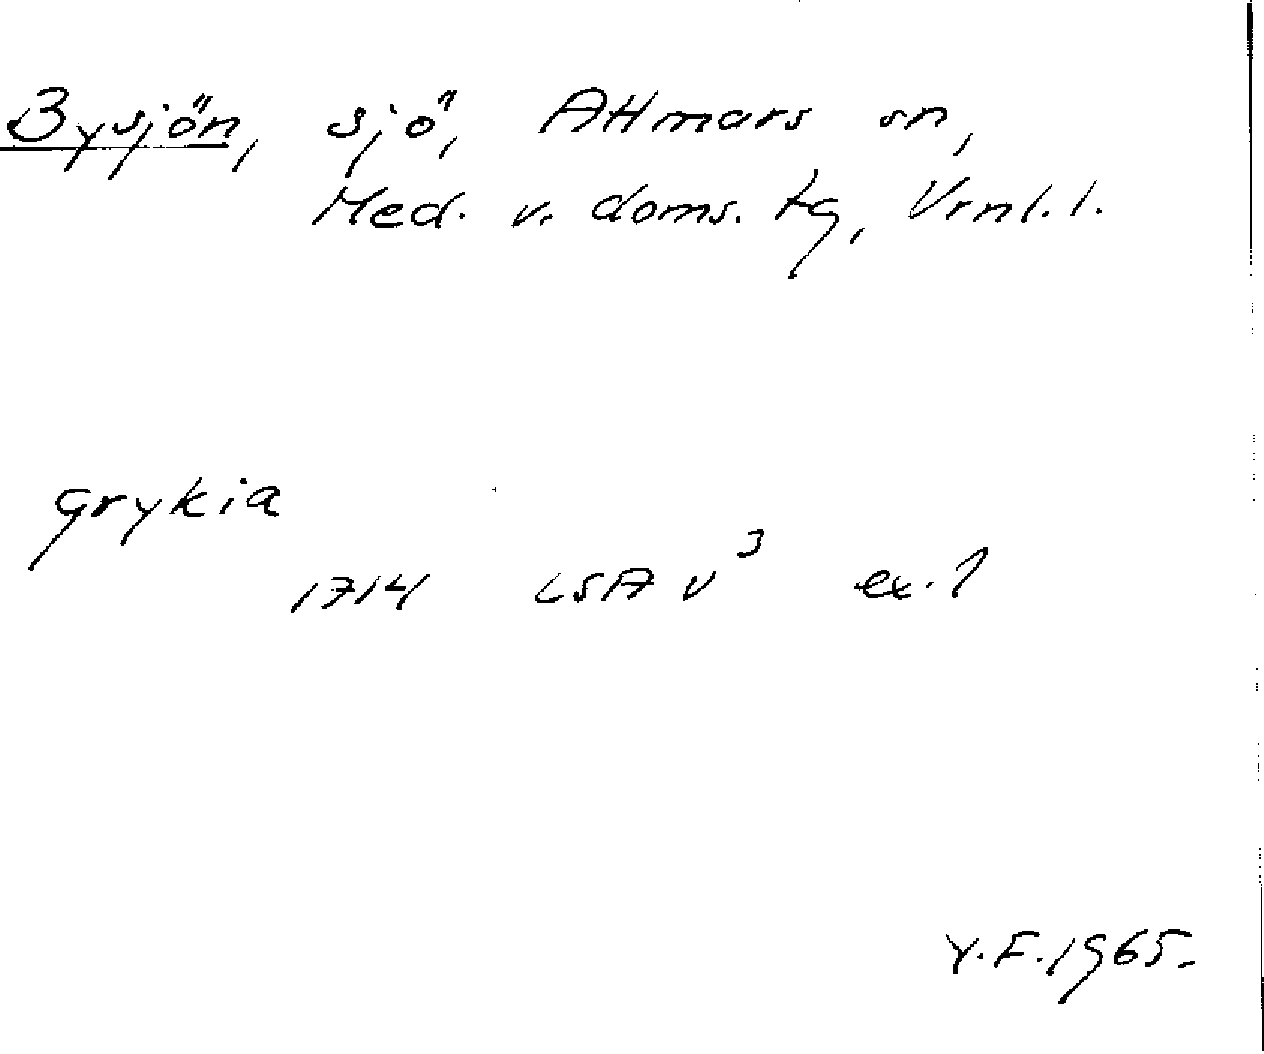 Bysjön, sjö, Attmars sn,
Med. v. doms. tg, Vrnl. l.
grykia
1714 LSA V³ ex. 1
Y.F. 1965.